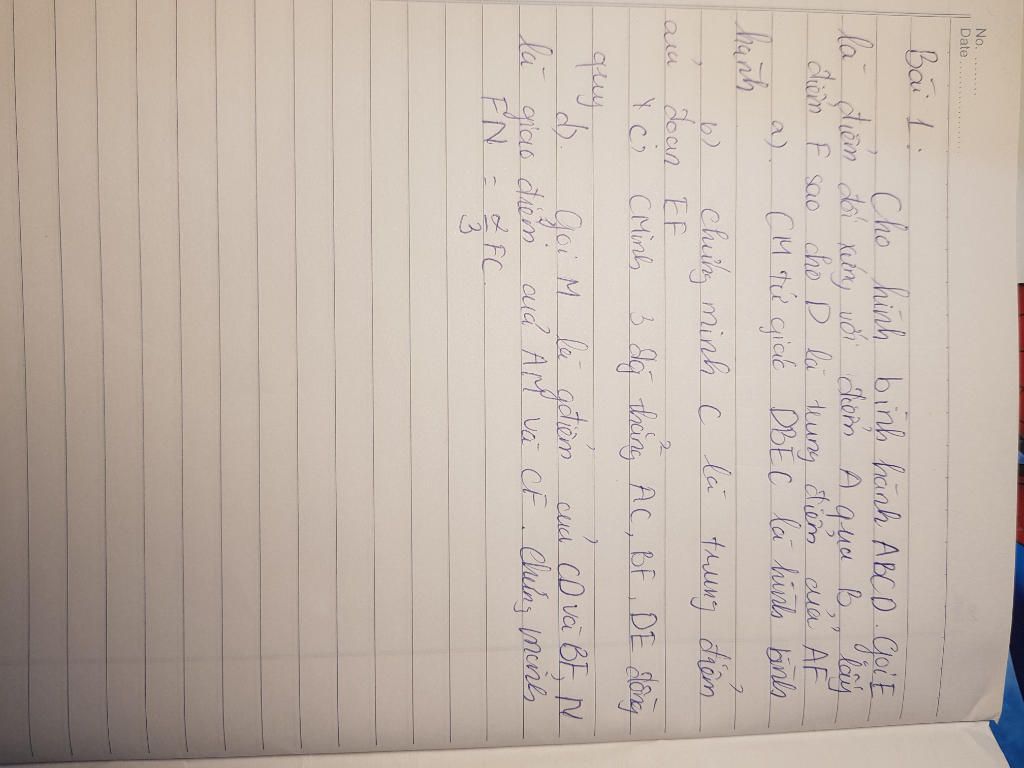 No. ........
Date ....................
Bài 1:
Cho hình bình hành ABCD. Gọi E
là điểm đối xứng với điểm A qua B, lấy
điểm F sao cho D là trung điểm của AF
a). CM tứ giác DBEC là hình bình
hành
b) chứng minh C là trung điểm
của đoạn EF
c) CMinh 3 đg thẳng AC, BF, DE đồng
quy
d). Gọi M là gđiểm của CD và BF, N
là giao điểm của AM và CF. Chứng minh
FN = 2/3 FC.